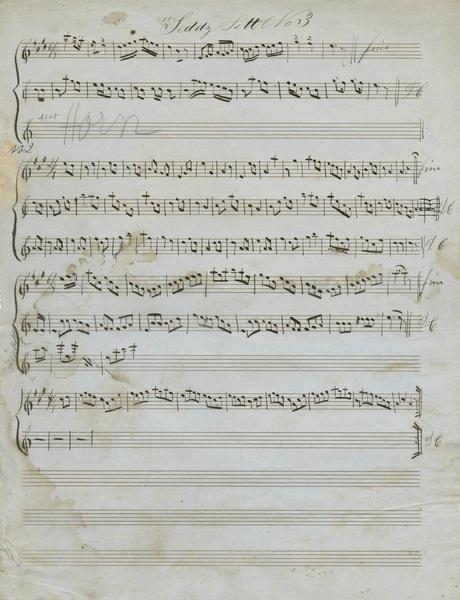 Sett No 3
fine
D C
Horn
No 2
fine
D C
D C
fine
D C
D C